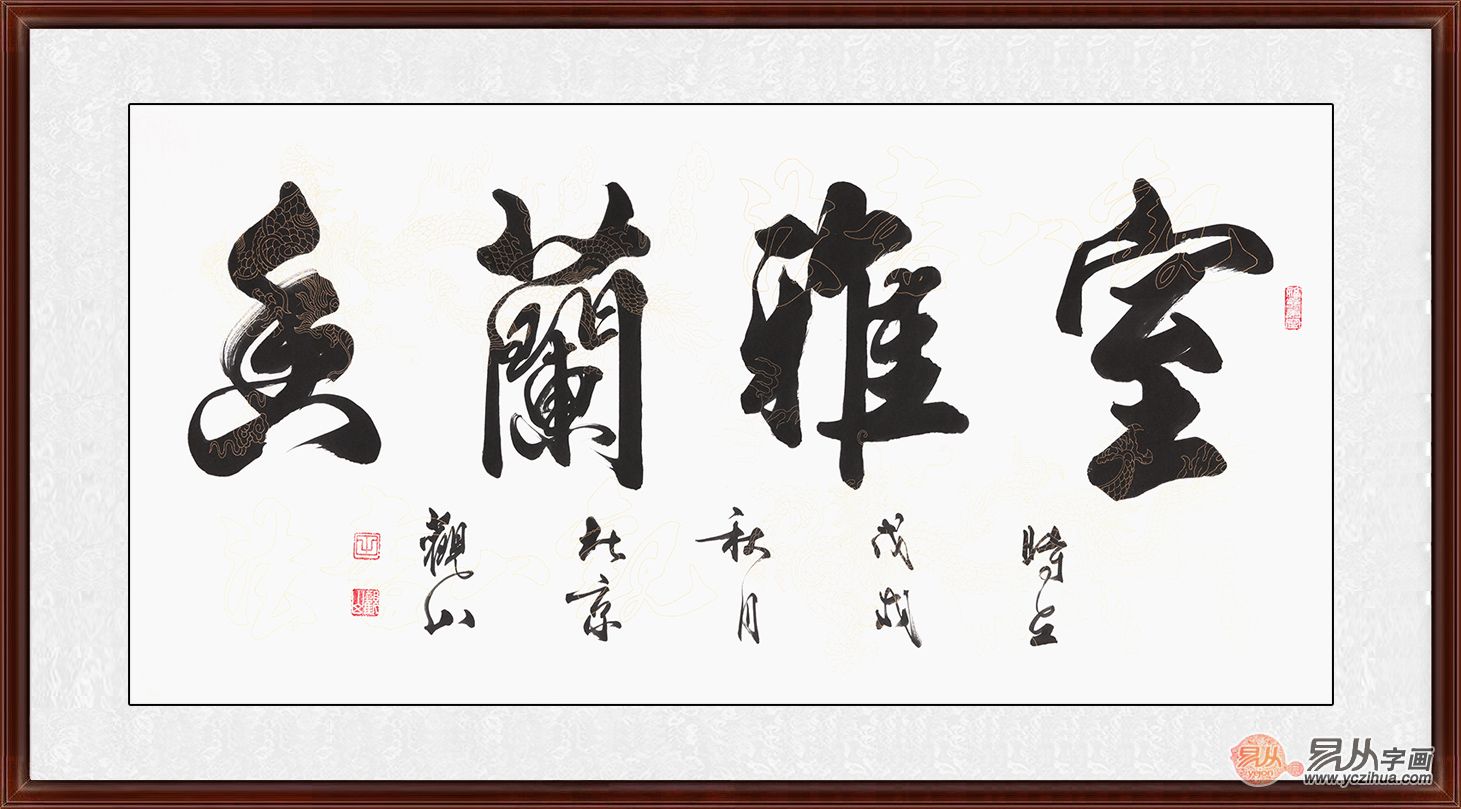 室雅蘭香
時在
戊戌
秋月
北京
觀山
易从字画
www.yczihua.com
易从
yigon